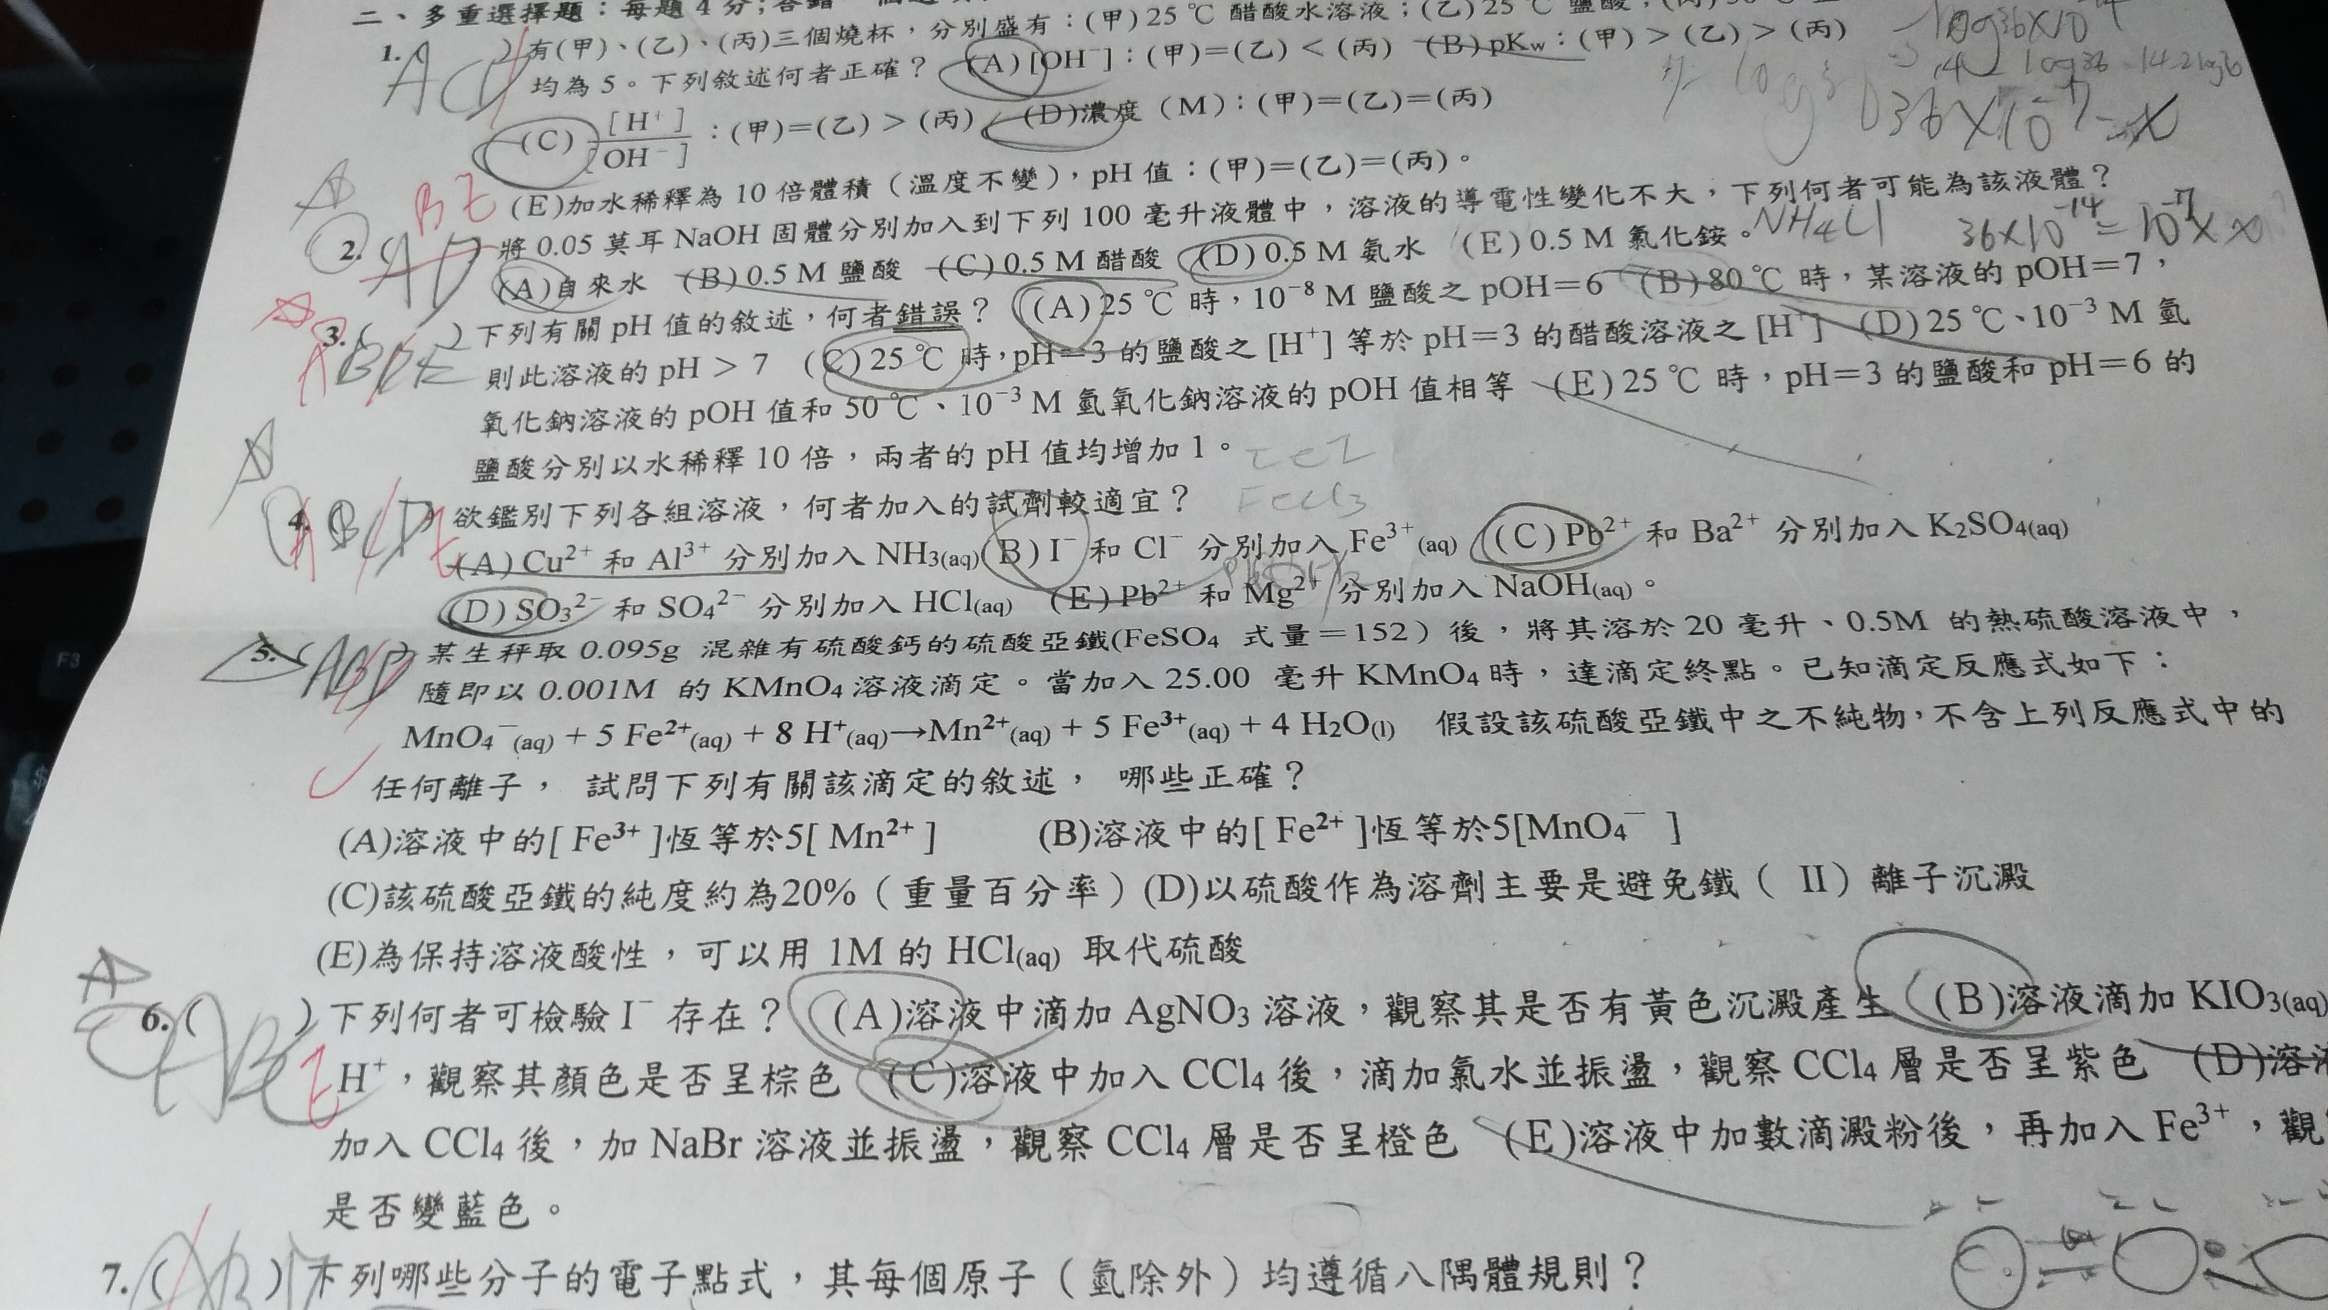 二、多重選擇題：每題4分；答錯一個
1. ACD )有(甲)、(乙)、(丙)三個燒杯，分別盛有：(甲)25℃醋酸水溶液；(乙)25℃鹽酸；
均為5。下列敘述何者正確？ (A)[OH⁻]：(甲)＝(乙)＜(丙) (B)pKw：(甲)＞(乙)＞(丙)
(C) [H⁺]/[OH⁻]：(甲)＝(乙)＞(丙) (D)濃度（M）：(甲)＝(乙)＝(丙)
(E)加水稀釋為10倍體積（溫度不變），pH值：(甲)＝(乙)＝(丙)。
BE
2. ( AD 將0.05莫耳NaOH固體分別加入到下列100毫升液體中，溶液的導電性變化不大，下列何者可能為該液體？
(A)自來水 (B)0.5 M鹽酸 (C)0.5 M醋酸 (D)0.5 M氨水 (E)0.5 M氯化銨。NH4Cl
36×10⁻¹⁴＝10⁻⁷× x
3. ( )下列有關pH值的敘述，何者錯誤？ (A)25℃時，10⁻⁸ M鹽酸之pOH＝6 (B)80℃時，某溶液的pOH＝7，
則此溶液的pH＞7 (C)25℃時，pH＝3的鹽酸之[H⁺]等於pH＝3的醋酸溶液之[H⁺] (D)25℃、10⁻³ M氫
氧化鈉溶液的pOH值和50℃、10⁻³ M氫氧化鈉溶液的pOH值相等 (E)25℃時，pH＝3的鹽酸和pH＝6的
鹽酸分別以水稀釋10倍，兩者的pH值均增加1。
FeCl3
4. ( BCD )欲鑑別下列各組溶液，何者加入的試劑較適宜？
(A)Cu²⁺和Al³⁺分別加入NH3(aq) (B)I⁻和Cl⁻分別加入Fe³⁺(aq) (C)Pb²⁺和Ba²⁺分別加入K2SO4(aq)
(D)SO₃²⁻和SO₄²⁻分別加入HCl(aq) (E)Pb²⁺和Mg²⁺分別加入NaOH(aq)。
5. ( )某生秤取0.095g 混雜有硫酸鈣的硫酸亞鐵(FeSO4 式量＝152）後，將其溶於20毫升、0.5M 的熱硫酸溶液中，
隨即以0.001M 的KMnO4溶液滴定。當加入25.00 毫升KMnO4時，達滴定終點。已知滴定反應式如下：
MnO4⁻(aq) + 5 Fe²⁺(aq) + 8 H⁺(aq)→Mn²⁺(aq) + 5 Fe³⁺(aq) + 4 H2O(l) 假設該硫酸亞鐵中之不純物，不含上列反應式中的
任何離子， 試問下列有關該滴定的敘述， 哪些正確？
(A)溶液中的[ Fe³⁺ ]恆等於5[ Mn²⁺ ] (B)溶液中的[ Fe²⁺ ]恆等於5[MnO4⁻ ]
(C)該硫酸亞鐵的純度約為20%（重量百分率）(D)以硫酸作為溶劑主要是避免鐵（ II）離子沉澱
(E)為保持溶液酸性，可以用 1M 的 HCl(aq) 取代硫酸
6. ( ABC )下列何者可檢驗I⁻存在？ (A)溶液中滴加AgNO3溶液，觀察其是否有黃色沉澱產生 (B)溶液滴加KIO3(aq)
E H⁺，觀察其顏色是否呈棕色 (C)溶液中加入CCl4後，滴加氯水並振盪，觀察CCl4層是否呈紫色 (D)溶
加入CCl4後，加NaBr溶液並振盪，觀察CCl4層是否呈橙色 (E)溶液中加數滴澱粉後，再加入Fe³⁺，觀
是否變藍色。
7. ( )下列哪些分子的電子點式，其每個原子（氫除外）均遵循八隅體規則？
F3